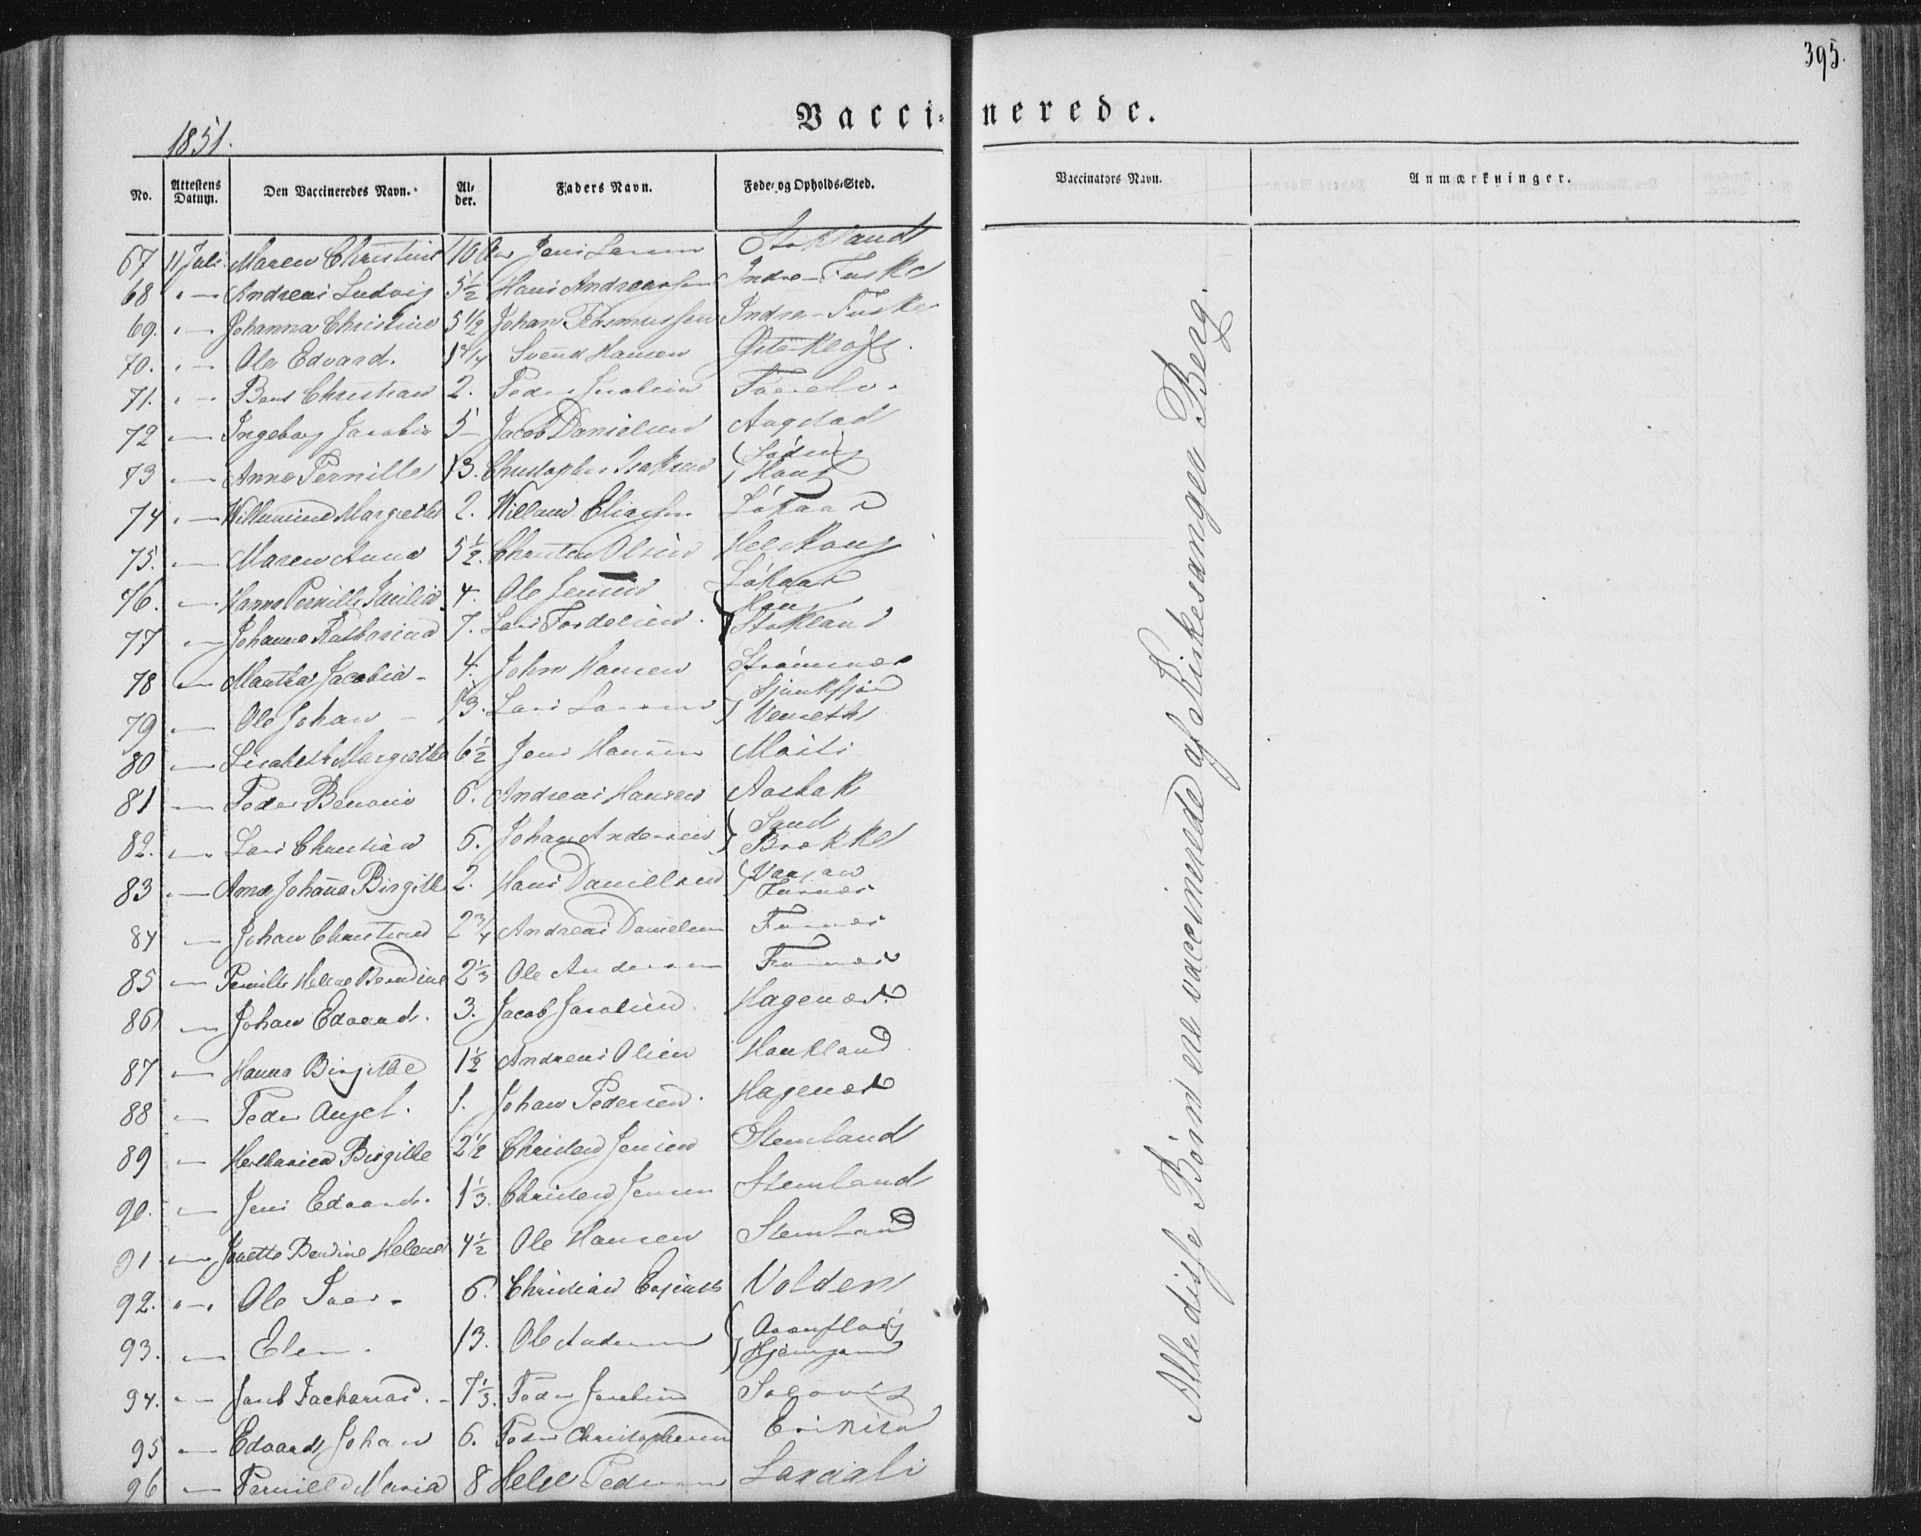 395.
Vaccinerede.
1851.
No. Attestens Datum. Den Vaccineredes Navn. Alder. Faders Navn. Føde- og Opholds-Sted. Vaccinators Navn. Anmærkninger.
67 11 Juli Maren Christine 10 Jens Larsen Stokland
68 " — Andreas Ludvig 5½ Hans Andreassen Indre-Fuske
69. " — Johanna Christine 5 1/2 Johan Rasmussen Indre-Fuske
70. " — Ole Edvard. 1 3/4 Svend Hansen
71. " — Bent Christian 2. Peder Jacobsen
72 — Ingeborg Jacobia 5 — Jacob Danielsen
73 — Anne Pernille 13. Christopher Isaksen
74 " — Willumine Margrethe 2. Willum Eliassen Løkaas
75. — Maren Anna 5½. Christen Olsen
76. — Hanna Pernille 4. Ole Jensen Løkaas
77 — Johanna Katharina 7. Lars Stokland
78 — Martha Jacobia — 4. John Hansen Strømnes
79 — Ole Johan — 13. Lars Larsen
80 — Lisabeth Margrethe 6½ Jens Hansen
81 — Peder Benoni 6. Andreas Hansen Aasbak
82. — Lars Christian 5. Johan Andersen Sand Brække
83 — Anna Johanna Birgitte 2. Hans Danielsen Furnes
84 — Johan Christian 2 3/4 Andreas Danielsen Furnes
85 — Pernille Helene Berndine 2⅓ Ole Andersen Furnes
86 — Johan Edvard. 3. Jacob Jacobsen. Hagenes
87 — Hanna Birgitte 1½ Andreas Olsen Haukland
88 — Peder Angel. 1. Johan Pedersen. Hagenes
89 — Birgitte 2½ Christen Jensen Stemland
90. — Jens Edvard. 1⅓. Christen Jensen Stemland
91 — Jonette Bendine Helene 4½ Ole Hansen Stemland
92. " — " Ole Iver — 6. Christian Volden
93. — Elen. 13. Ole Andersen
94. — Jacob Zacharias. — 7⅓. Peder Jacobsen
95 — Edvard Johan 6. Peder Christophersen
96 — Pernille Maria 8 Pedersen
Alle disse Børn ere vaccinerede af Kirkesanger Berg.